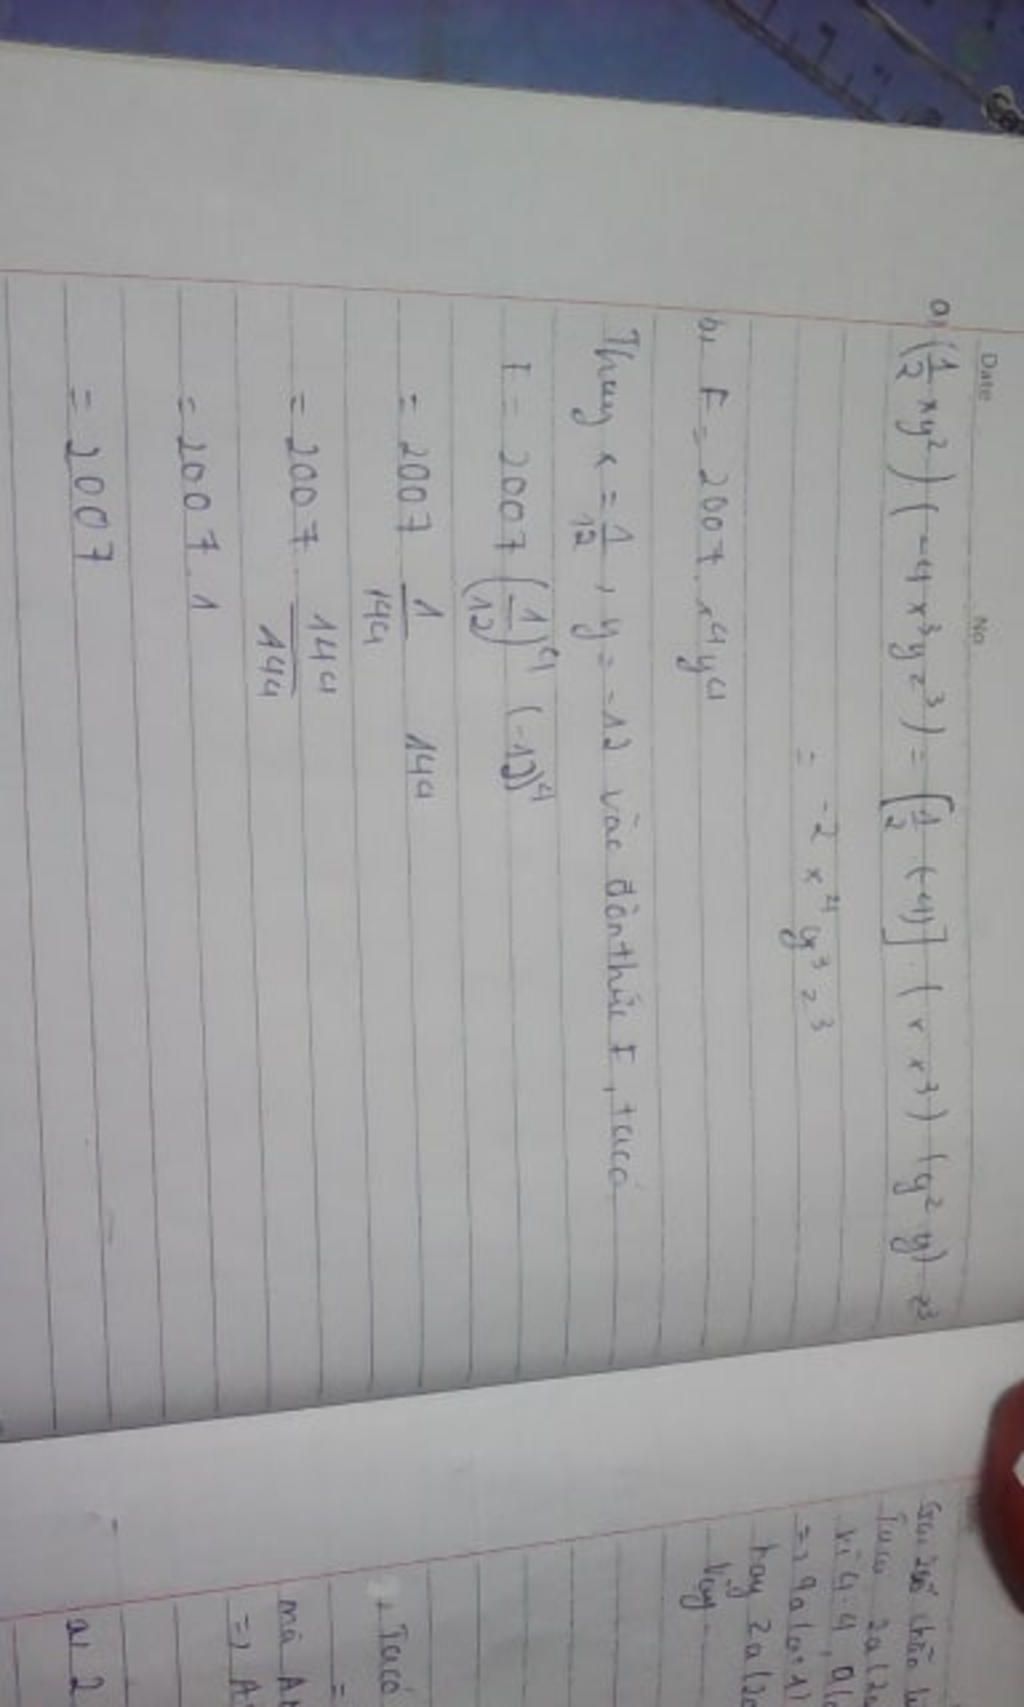 Date
No
a, (1/2 xy²) (-4x³yz³) = [1/2 (-4)] . (x x³) (y² y) z³
= -2 x⁴ y³ z³
b, F = 2007 . x⁴y⁴
Thay x = 1/12 , y = -12 vào đơn thức F , ta có
F = 2007 (1/12)⁴ (-12)⁴
= 2007 1/144 144
= 2007 . 144/144
= 2007 . 1
= 2007
hay 2a(2
Vậy
+ Ta có
=
mà A
=) A
a, 2